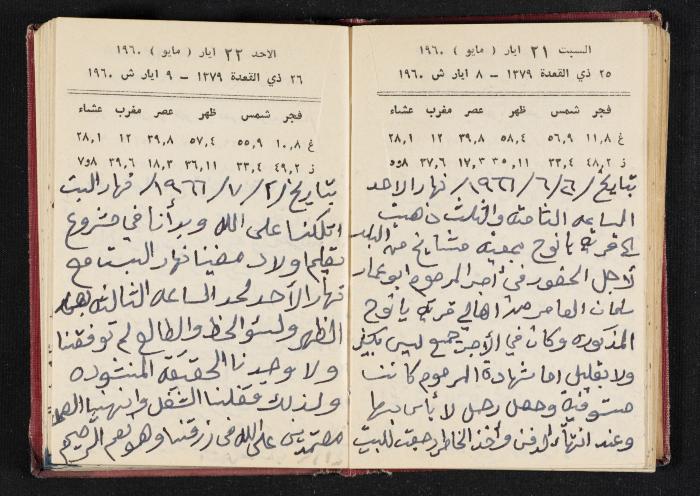 السبت ٢١ ايار ( مايو ) ١٩٦٠
٢٥ ذي القعدة ١٣٧٩ – ٨ ايار ش ١٩٦٠
فجر شمس ظهر عصر مغرب عشاء
غ ١١,٨ ٥٦,٩ ٥٨,٤ ٣٩,٨ ١٢ ٢٨,١
ز ٤٨,٢ ٣٣,٤ ٣٥,١١ ١٧,٣ ٣٧,٦ ٥و٨
بتاريخ /٦/٦/١٩٦٦/ نهار الاحد
الساعه الثامنه والثلث ذهبت
الى قرية يانوح بمعية مشايخ من البلد
لاجل الحضور في أجر المرحوم ابو عمار
سلمان العامر من اهالي قرية يانوح
المذكوره وكان في الأجر جميع ليس بكثير
ولا بقليل اما شهادة المرحوم كانت
مستوفية وحصل رحمه لا بأس بها
وعند انتهاء الدفن وأخذ الخاطر رجعت للبيت
الاحد ٢٢ ايار ( مايو ) ١٩٦٠
٢٦ ذي القعدة ١٣٧٩ – ٩ ايار ش ١٩٦٠
فجر شمس ظهر عصر مغرب عشاء
غ ١٠,٨ ٥٥,٩ ٥٧,٤ ٣٩,٨ ١٢ ٢٨,١
ز ٤٩,٢ ٣٣,٤ ٣٦,١١ ١٨,٣ ٣٩,٦ ٧و٨
بتاريخ /٢/٧/١٩٦٦/ نهار السبت
اتكلنا على الله وبدأنا في مشروع
مضينا نهار السبت مع
نهار الأحد لحد الساعه الثالثه بعد
الظهر ولسؤ الحظ والطالع لم توفقنا
ولا وجدنا الحقيقه المنشوده
ولذلك فقلنا الشغل وانهينا العمل
معتمدين على الله في رزقنا وهو نعم الرحيم